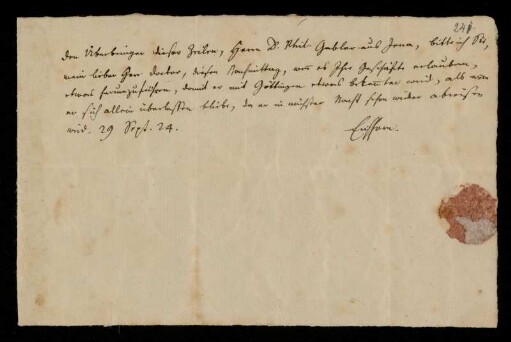 241
Den Überbringer dieser Zeilen, Herrn D. Phil. Gabler aus Jena, bitte ich Sie,
mein lieber Herr Doctor, diesen Nachmittag, wenn es Ihre Geschäfte erlauben,
etwas herumzuführen, damit er mit Göttingen etwas bekannter wird, als wenn
er sich allein überlassen bleibt, da er in nächster Nacht schon wieder abreisen
wird. 29 Sept. 24.